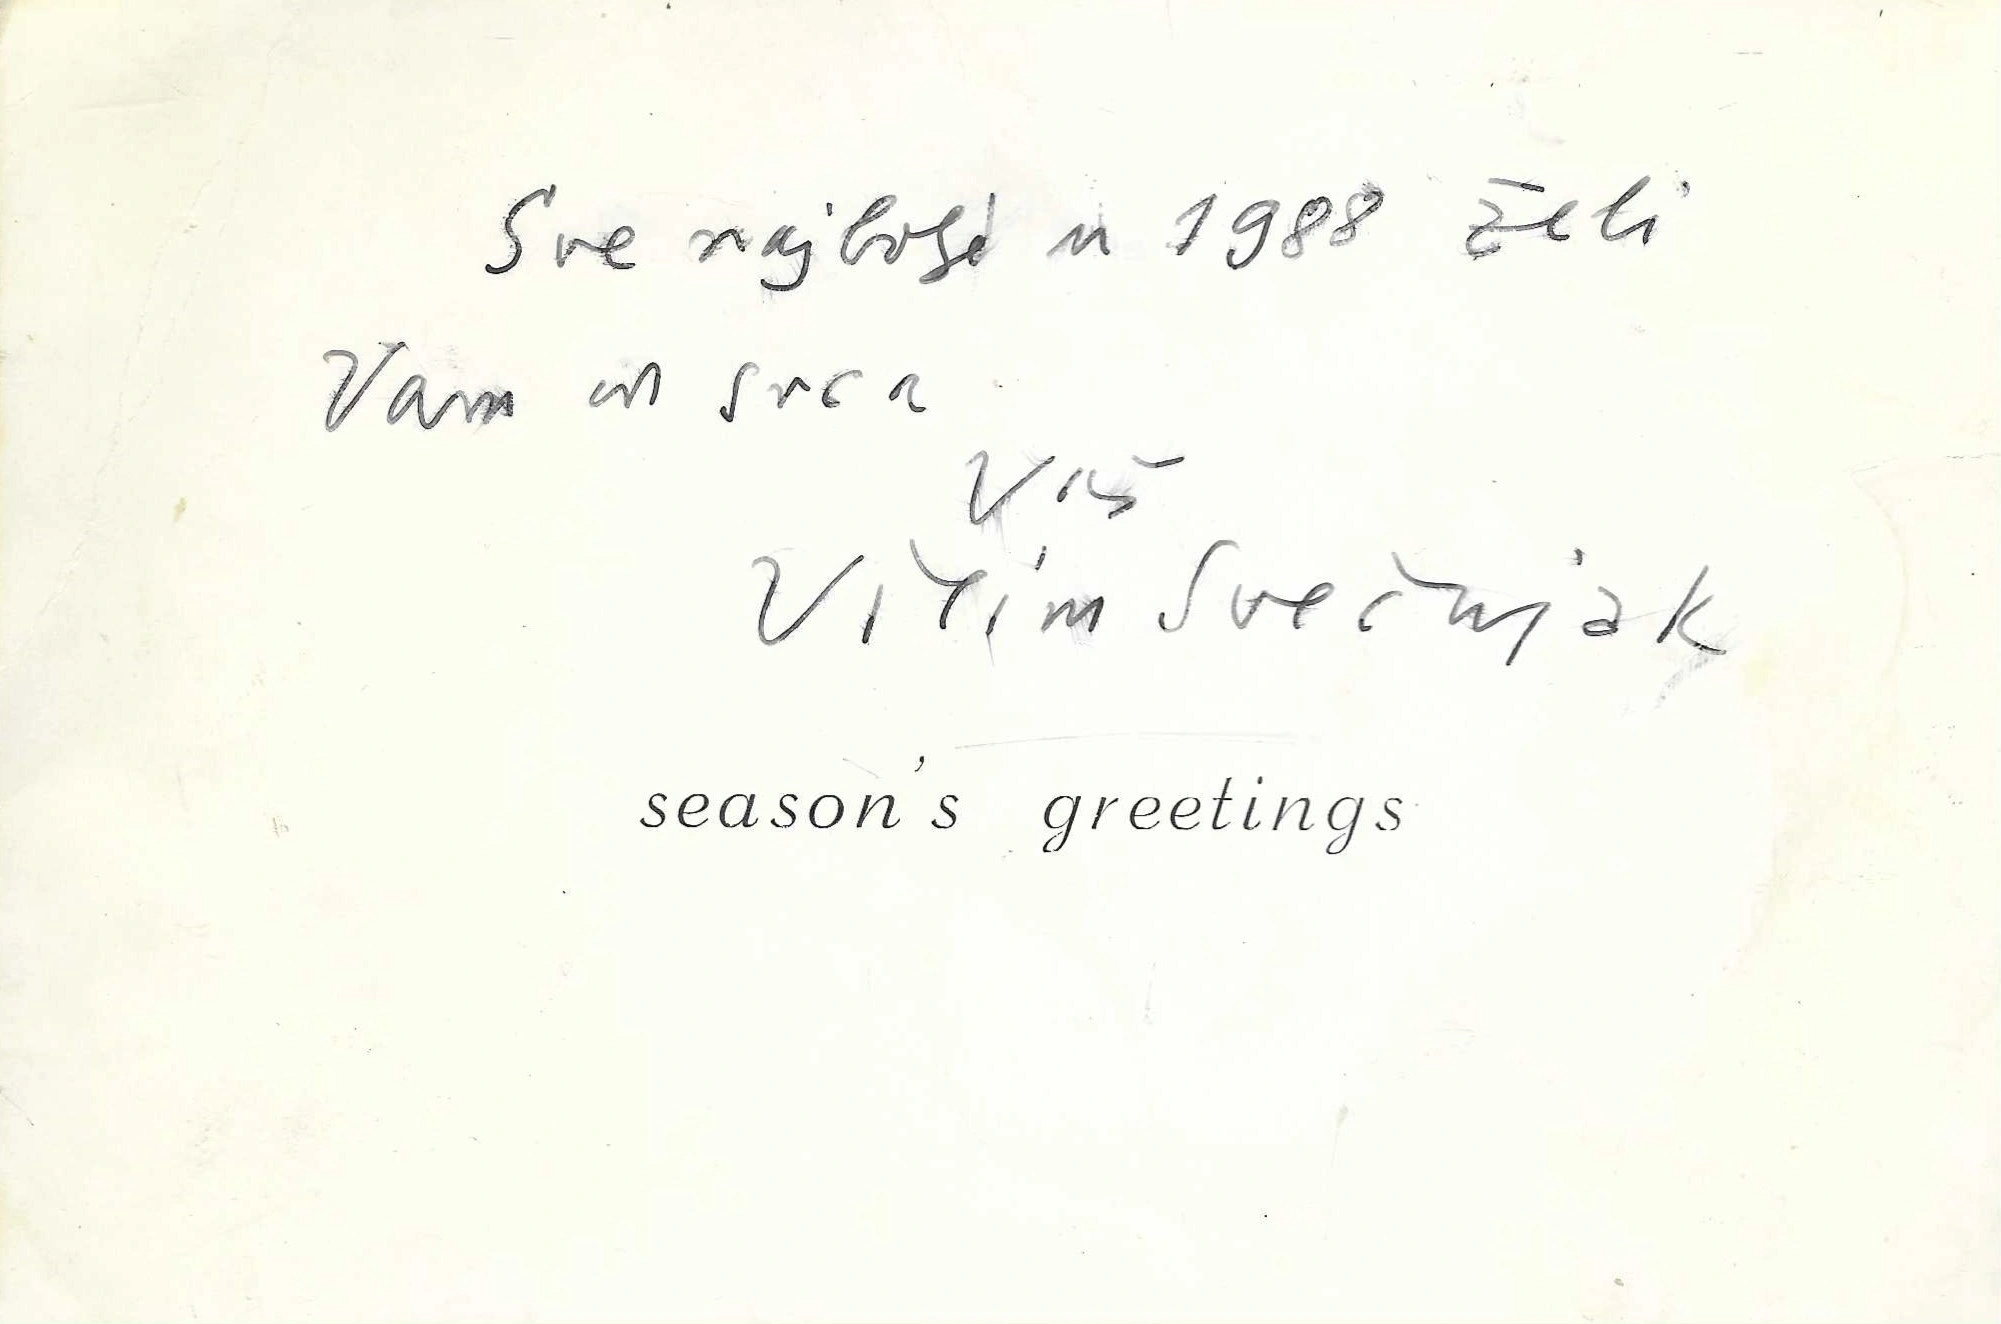 Sve najbolje u 1988 želi
Vam od srca
Vaš
Vilim Svečnjak
season's greetings